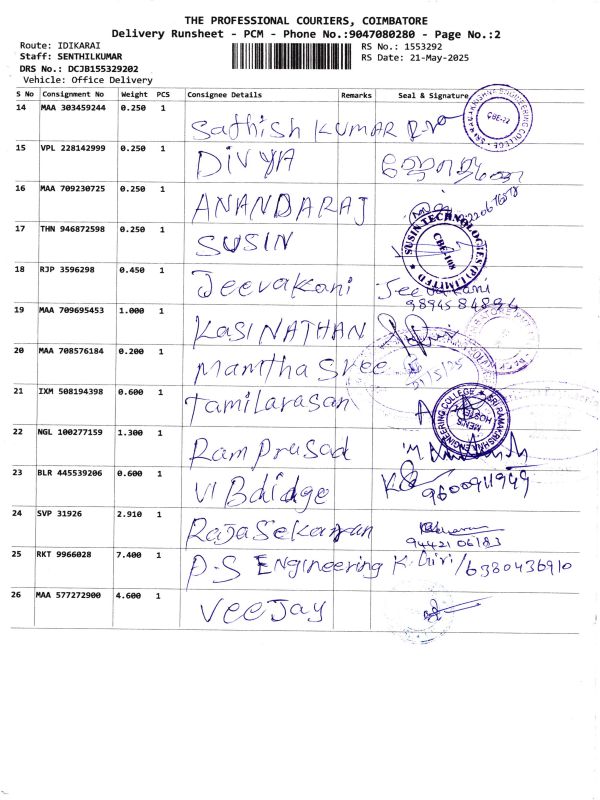 THE PROFESSIONAL COURIERS, COIMBATORE
Delivery Runsheet - PCM - Phone No.:9047080280 - Page No.:2
Route: IDIKARAI
RS No.: 1553292
Staff: SENTHILKUMAR
RS Date: 21-May-2025
DRS No.: DCJB155329202
Vehicle: Office Delivery
S No Consignment No Weight PCS Consignee Details Remarks Seal & Signature
14 MAA 303459244 0.250 1 Sathish KUMAR
15 VPL 228142999 0.250 1 DIVYA
16 MAA 709230725 0.250 1 ANANDARAJ
17 THN 946872598 0.250 1 SUSIN SUSIN TECHNOLOGIES (P) LIMITED
18 RJP 3596298 0.450 1 Jeevakani Jeevakani
9894584894
19 MAA 709695453 1.000 1 KASINATHAN
20 MAA 708576184 0.200 1 Mamtha Sree 21/5/25
21 IXM 508194398 0.600 1 Tamilarasan SRI RAMAKRISHNA ENGINEERING COLLEGE MENS HOSTEL
22 NGL 100277159 1.300 1 Ram Prasad
23 BLR 445539206 0.600 1 9600911949
24 SVP 31926 2.910 1 RajaSekaran
9442106183
25 RKT 9966028 7.400 1 P.S Engineering K. Giri/6380436910
26 MAA 577272900 4.600 1 VeeJay